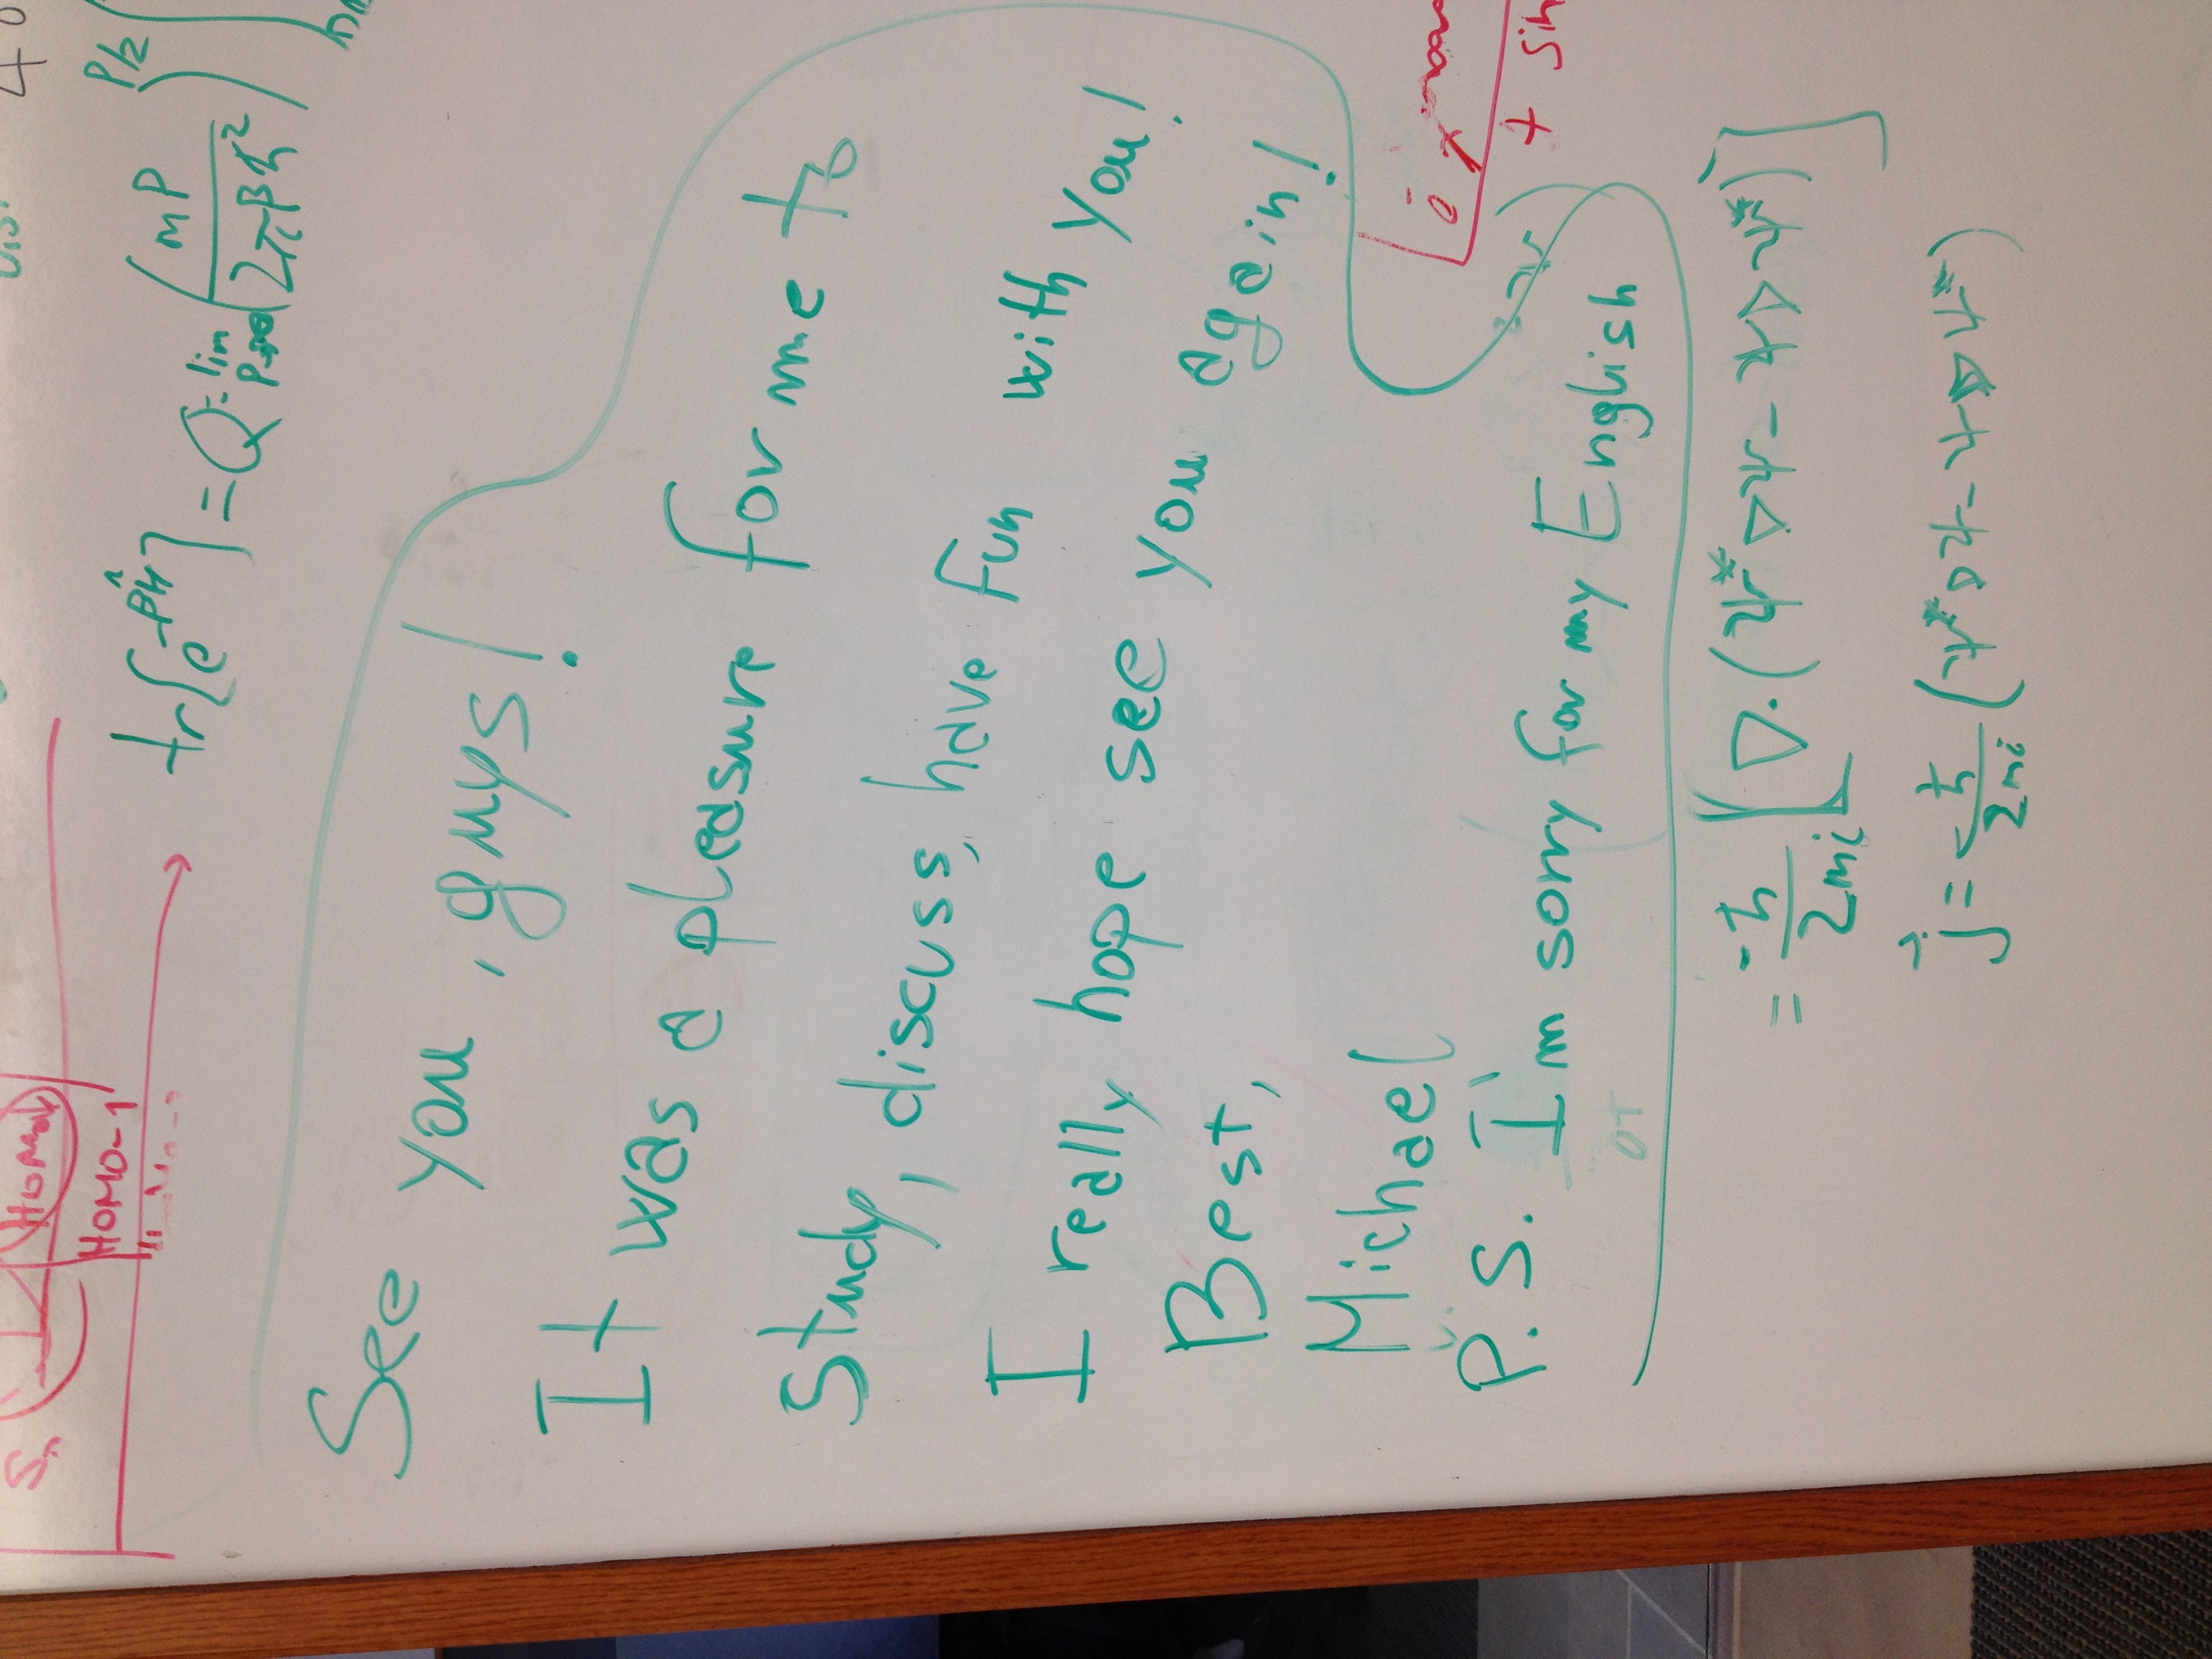 tr[e^-βĤ] = Q = lim P→∞ (mP / 2πβħ²)^P/2
HOMO-1
See you, guys!
It was a pleasure for me to
study, discuss, have fun with you!
I really hope see you again!
Best,
Michael
P.S. I'm sorry for my English
= -ħ/2mi [∇·(ψ*∇ψ - ψ∇ψ*)]
j = ħ/2mi (ψ*∇ψ - ψ∇ψ*)